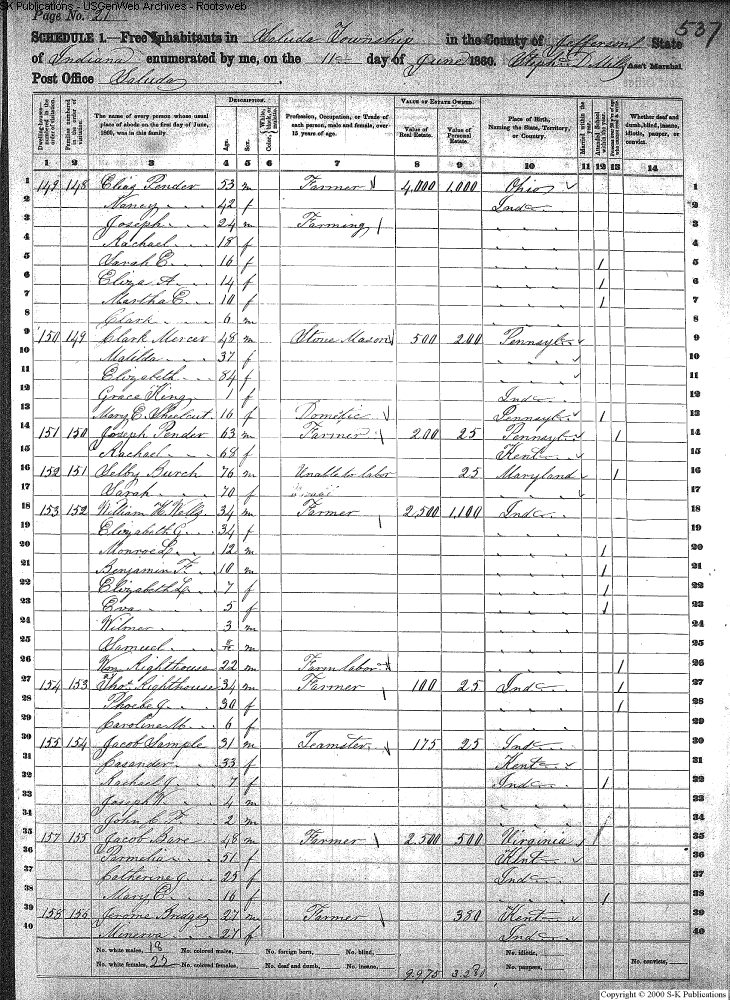 SK Publications - USGenWeb Archives - Rootsweb
Page No. 21
537
SCHEDULE 1.—Free Inhabitants in Saluda Township in the County of Jefferson State
of Indiana enumerated by me, on the 11 day of June 1860. Ass't Marshal.
Post Office Saluda
Dwelling-houses—numbered in the order of visitation.
Families numbered in the order of visitation.
The name of every person whose usual place of abode on the first day of June, 1860, was in this family.
DESCRIPTION.
Age.
Sex.
Color, White, black, or mulatto.
Profession, Occupation, or Trade of each person, male and female, over 15 years of age.
VALUE OF ESTATE OWNED.
Value of Real Estate.
Value of Personal Estate.
Place of Birth, Naming the State, Territory, or Country.
Married within the year.
Attended School within the year.
Whether deaf and dumb, blind, insane, idiotic, pauper, or convict.
1 2 3 4 5 6 7 8 9 10 11 12 13 14
1 149 148 Elias Pender 53 m Farmer 4,000 1,000 Ohio 1
2 Nancy 42 f Ind 2
3 Joseph 24 m Farming 3
4 Rachael 18 f 4
5 Sarah E. 16 f / 5
6 Eliza A. 14 f / 6
7 Martha E. 10 f / 7
8 Clark 6 m 8
9 150 149 Clark Mercer 48 m Stone Mason 500 200 Pennsyl 9
10 Matilda 37 f 10
11 Elizabeth 84 f 11
12 Grace King 1 f Ind 12
13 Mary E. 16 f Domestic Pennsyl / 13
14 151 150 Joseph Pender 63 m Farmer 200 25 Pennsyl / 14
15 Rachael 68 f Kent 15
16 152 151 Selby Burch 76 m Unable to labor 25 Maryland / 16
17 Sarah 70 f 17
18 153 152 William H. Wells 34 m Farmer 2,500 1,100 Ind 18
19 Elizabeth J. 34 f 19
20 Monroe L. 12 m / 20
21 Benjamin F. 10 m / 21
22 Elizabeth L. 7 f / 22
23 Eva 5 f / 23
24 Wilmer 3 m 24
25 Samuel m 25
26 Wm Righthouse 22 m Farm labor / 26
27 154 153 Thos Righthouse 34 m Farmer 100 25 Ind / 27
28 Phoebe J. 30 f / 28
29 Caroline M. 6 f 29
30 155 154 Jacob Sample 31 m Teamster 175 25 Ind 30
31 Casander 33 f Kent 31
32 Rachael J. 7 f Ind / 32
33 Joseph W. 4 m 33
34 John C. F. 2 m 34
35 157 155 Jacob Bare 48 m Farmer 2,500 500 Virginia 35
36 Parmelia 51 f Kent 36
37 Catherine J. 25 f Ind 37
38 Mary E. 16 f / 38
39 158 156 Jerome Bridges 27 m Farmer 380 Kent 39
40 Minerva 27 f Ind 40
No. white males, 18 No. colored males, No. foreign born, No. blind, No. idiotic,
No. white females, 22 No. colored females, No. deaf and dumb, No. insane, 9.975 3.280 No. paupers, No. convicts,
Copyright © 2000 S-K Publications